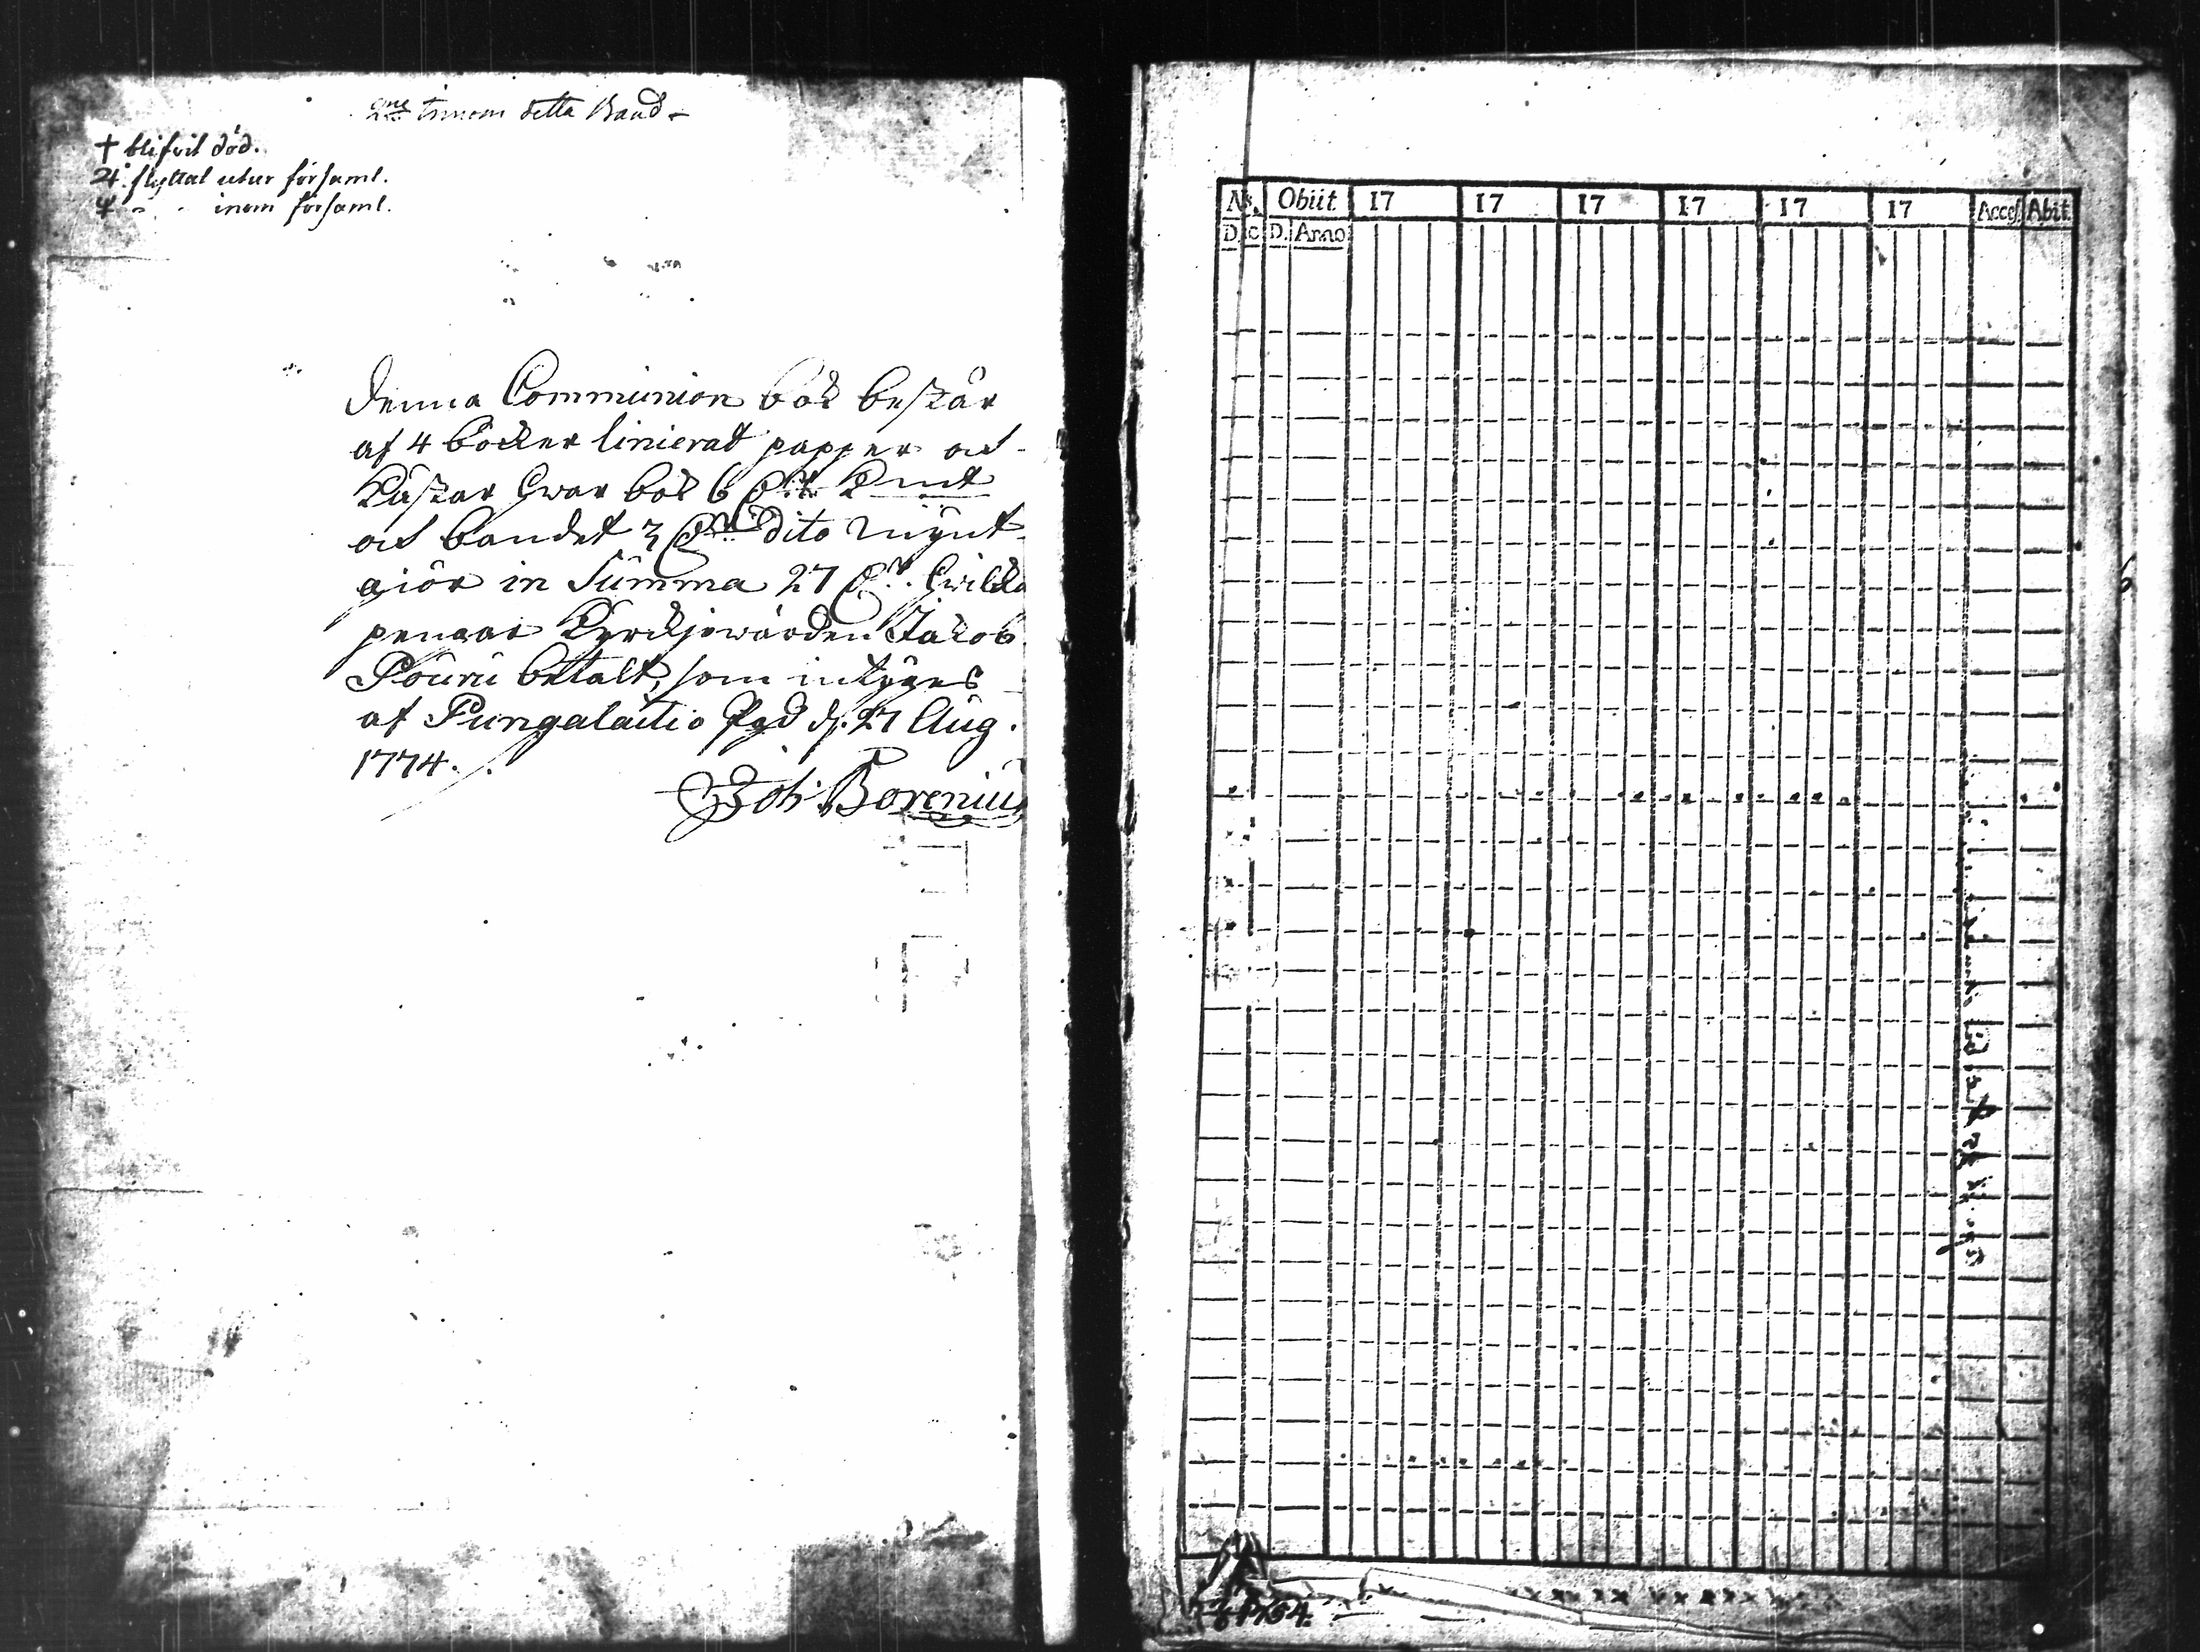 detta Band
† blifvit död.
♃ flyttat utur församl.
♆ " " inom församl.
Denna Communion bok består
af 4 böcker linierat papper och
kåstar hwar bok 6
och bandet 3 dito mÿnt
giör in Summa 27 hwilka
pengar Kyrckjowärden Jakob
Pouru betalt, som intÿges
af Pungalaitio Pgd d. 27 Aug.
1774.
Joh: Borenius
No. Obiit 17 17 17 17 17 17 Access. Abit
D. C D. Anno